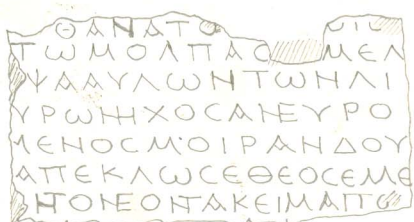 ΘΑΝΑΤΟ
ΤΩΜΟΛΠΑC ΜΕΛ
ΨΑΑΥΛΩΝΤΩΝΛΙ
ΥΡΩΝΗΧΟCΑΝΕΥΡΟ
ΜΕΝΟCΜΟΙΡΑΝΔΟΥ
ΑΠΕΚΛΩCΕΘΕΟCΕΜΕ
ΗΤΟΝΕΟΝΤΑΚΕΙΜΑΙΤΩ